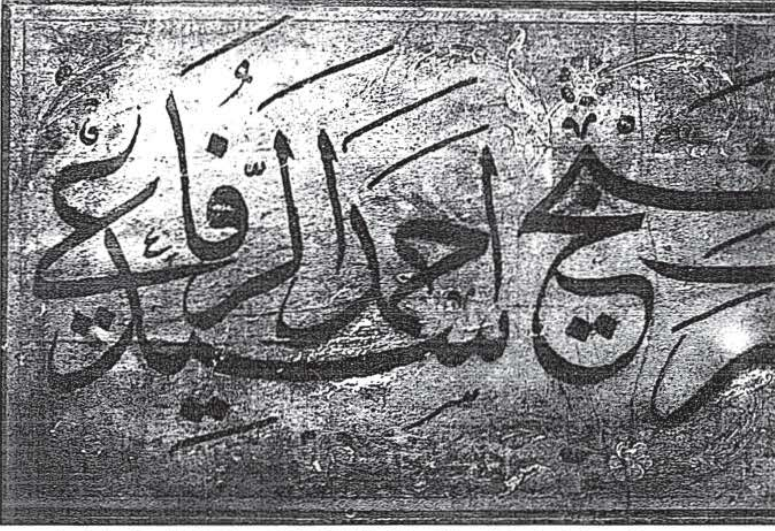 شيخ سيد احمد الرفاعي